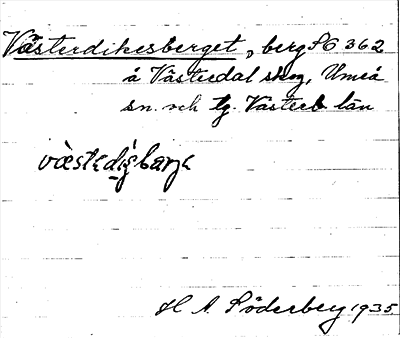 Västerdikesberget, berg SG 362
å Västredal skog, Umeå
sn. och tg. Västerb län
H A. Söderberg 1935.